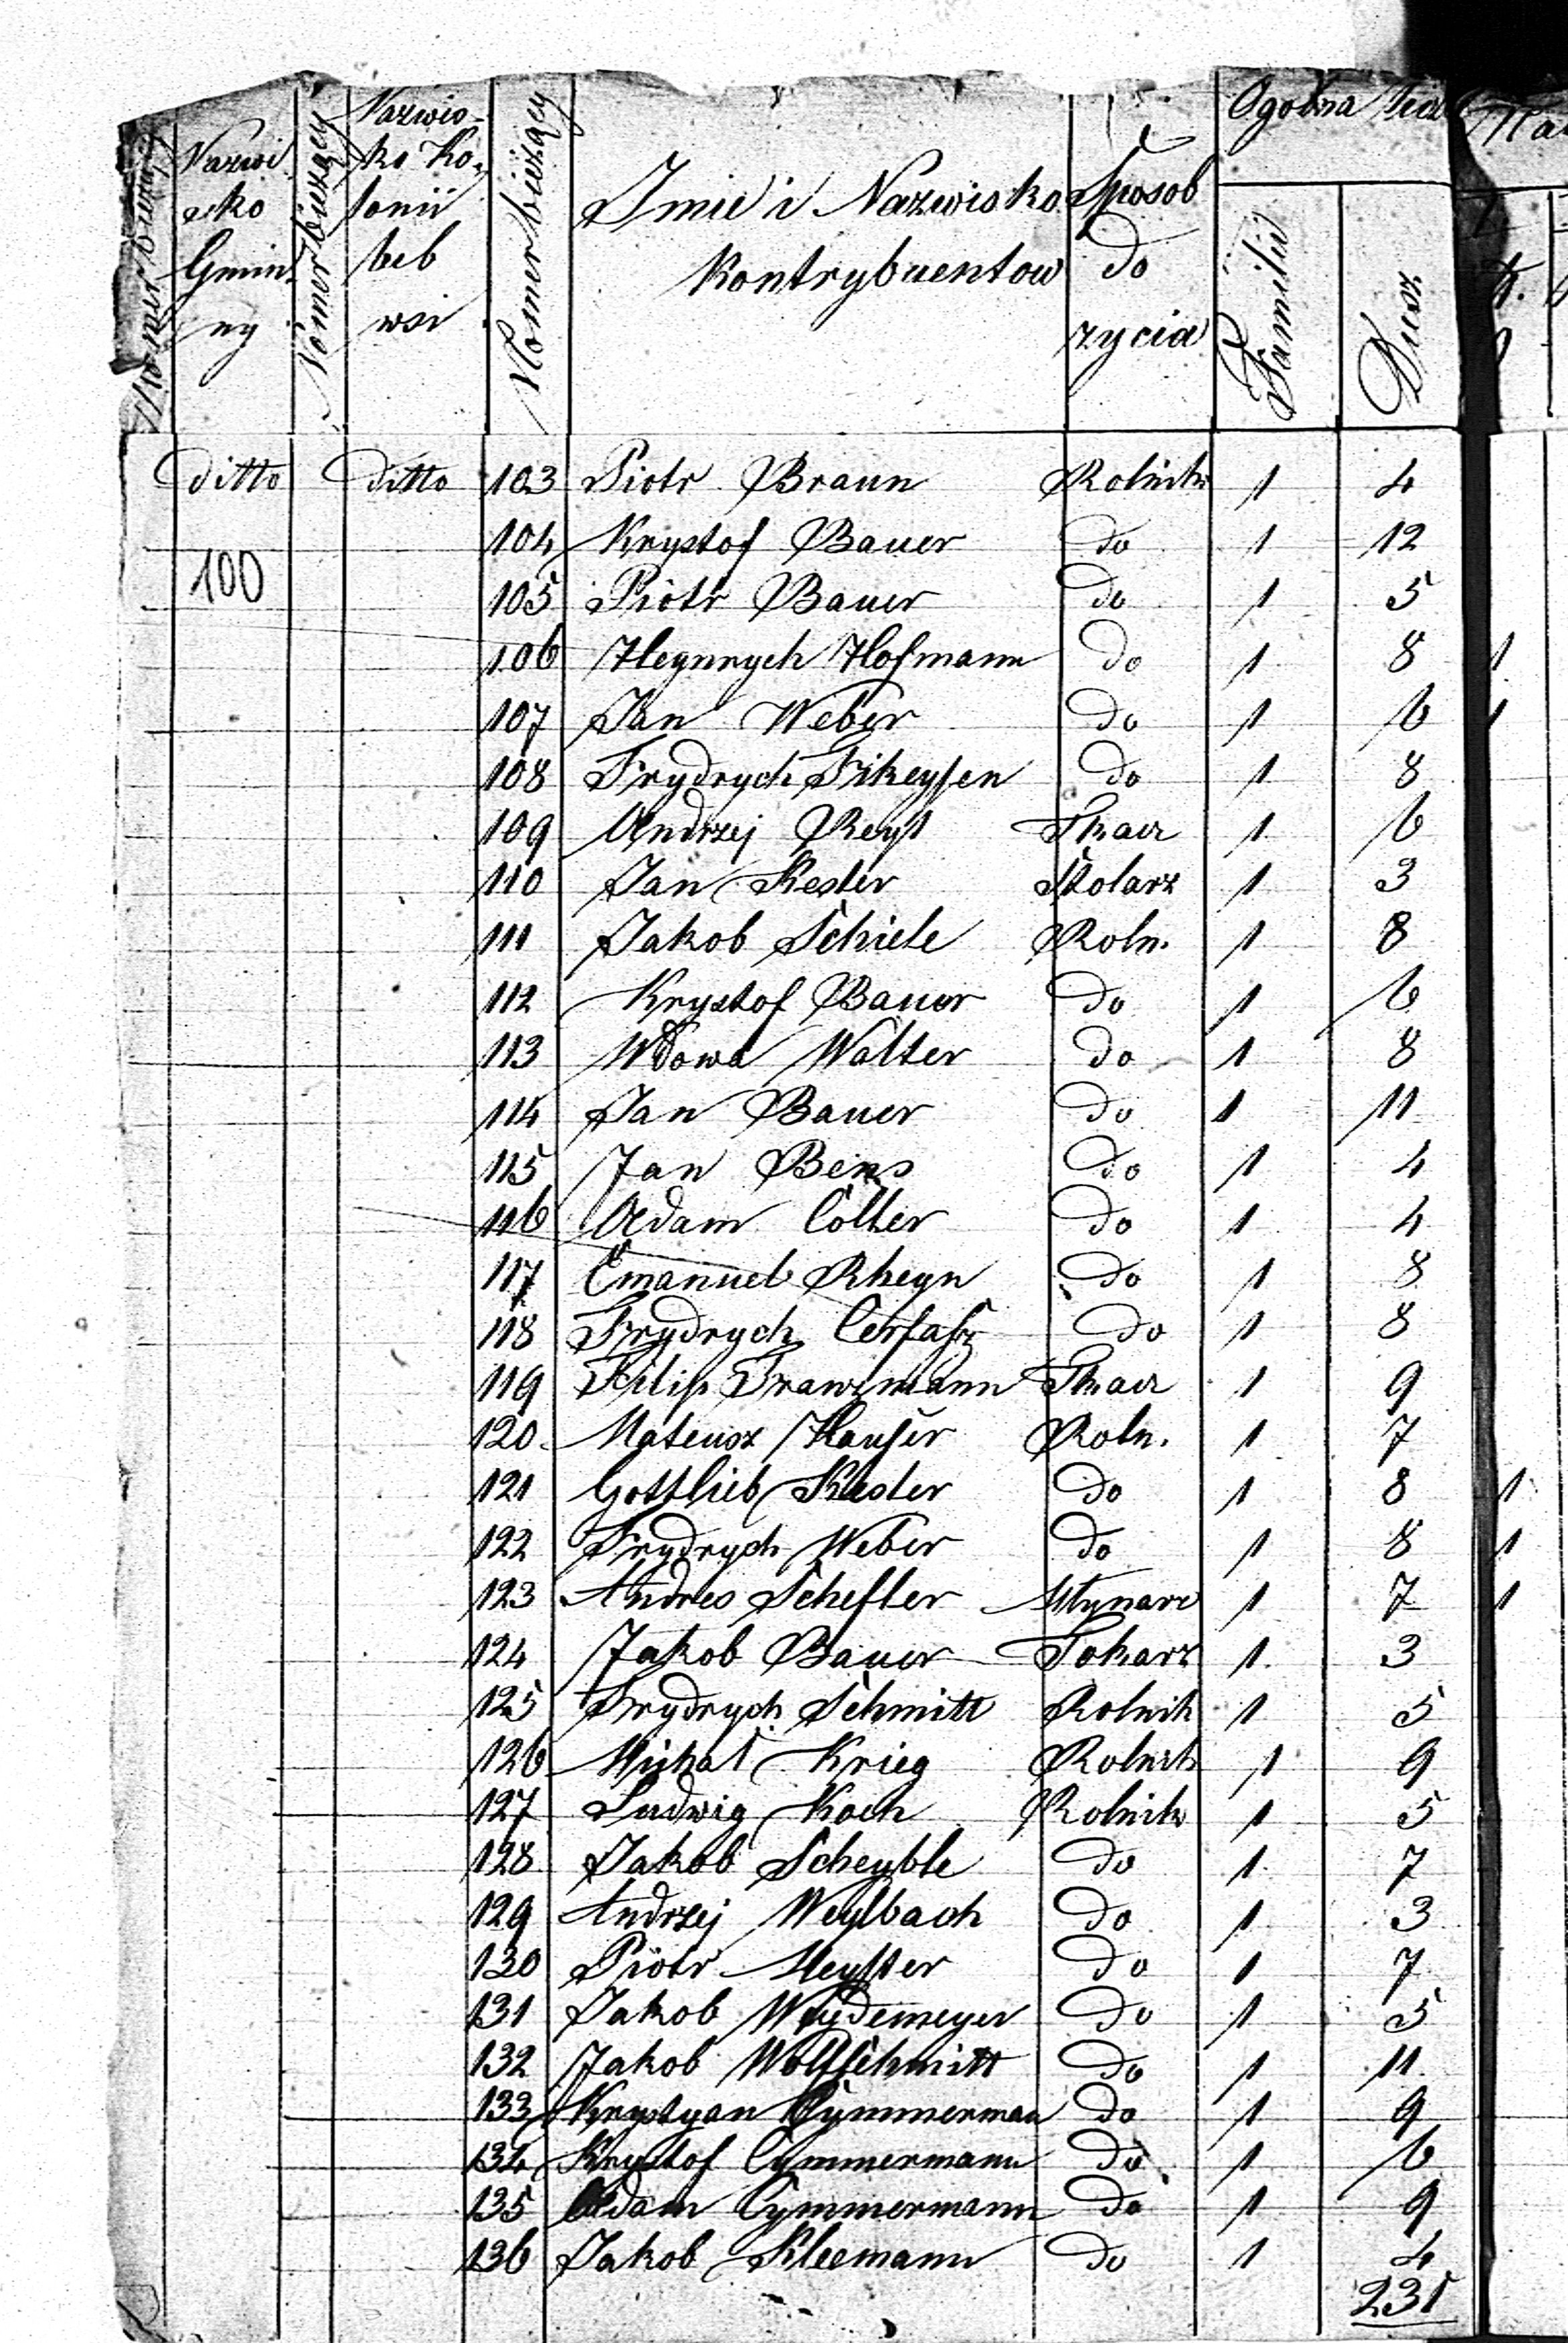 Nomer bieżący
Nazwisko Gminny
Nomer bieżący
Nazwisko Kolonii lub wsi
Nomer bieżący
Imie i Nazwisko Kontrybuentow
Sposob do zycia
Ogolna
Familii
Dusz
ditto ditto 103 Piotr Braun Rolnik 1 4
104 Krystof Bauer do 1 12
100
105 Piotr Bauer do 1 5
106 Heynrych Hofmann do 1 8 1
107 Jan Weber do 1 6 1
108 Frydrych Fikeysen do 1 8
109 Andrzej Reyt Tkacz 1 6
110 Jan Kesler Stolarz 1 3
111 Jakob Schiele Roln. 1 8
112 Krystof Bauer do 1 6
113 Wdowa Walter do 1 8
114 Jan Bauer do 1 11
115 Jan Bens do 1 4
116 Adam Colter do 1 4
117 Emanuel Rheyn do 1 8
118 Frydrych Cerfass do 1 8
119 Filip Franzmann Tkacz 1 9
120 Mateusz Hauser Roln. 1 7
121 Gottlieb Kesler do 1 8 1
122 Frydrych Weber do 1 8 1
123 Andres Schefler Młynarz 1 7 1
124 Jakob Bauer Tokarz 1 3
125 Frydrych Schmitt Rolnik 1 5
126 Michał Krieg Rolnik 1 9
127 Ludwig Koch Rolnik 1 5
128 Jakob Scheyble do 1 7
129 Andrzej Weylbach do 1 3
130 Piotr Meyster do 1 7
131 Jakob Weydemeyer do 1 5
132 Jakob Wolfschmitt do 1 11
133 Krystyan Cymmerman do 1 9
134 Krystof Cymmermann do 1 6
135 Adam Cymmermann do 1 9
136 Jakob Kleemann do 1 4
231